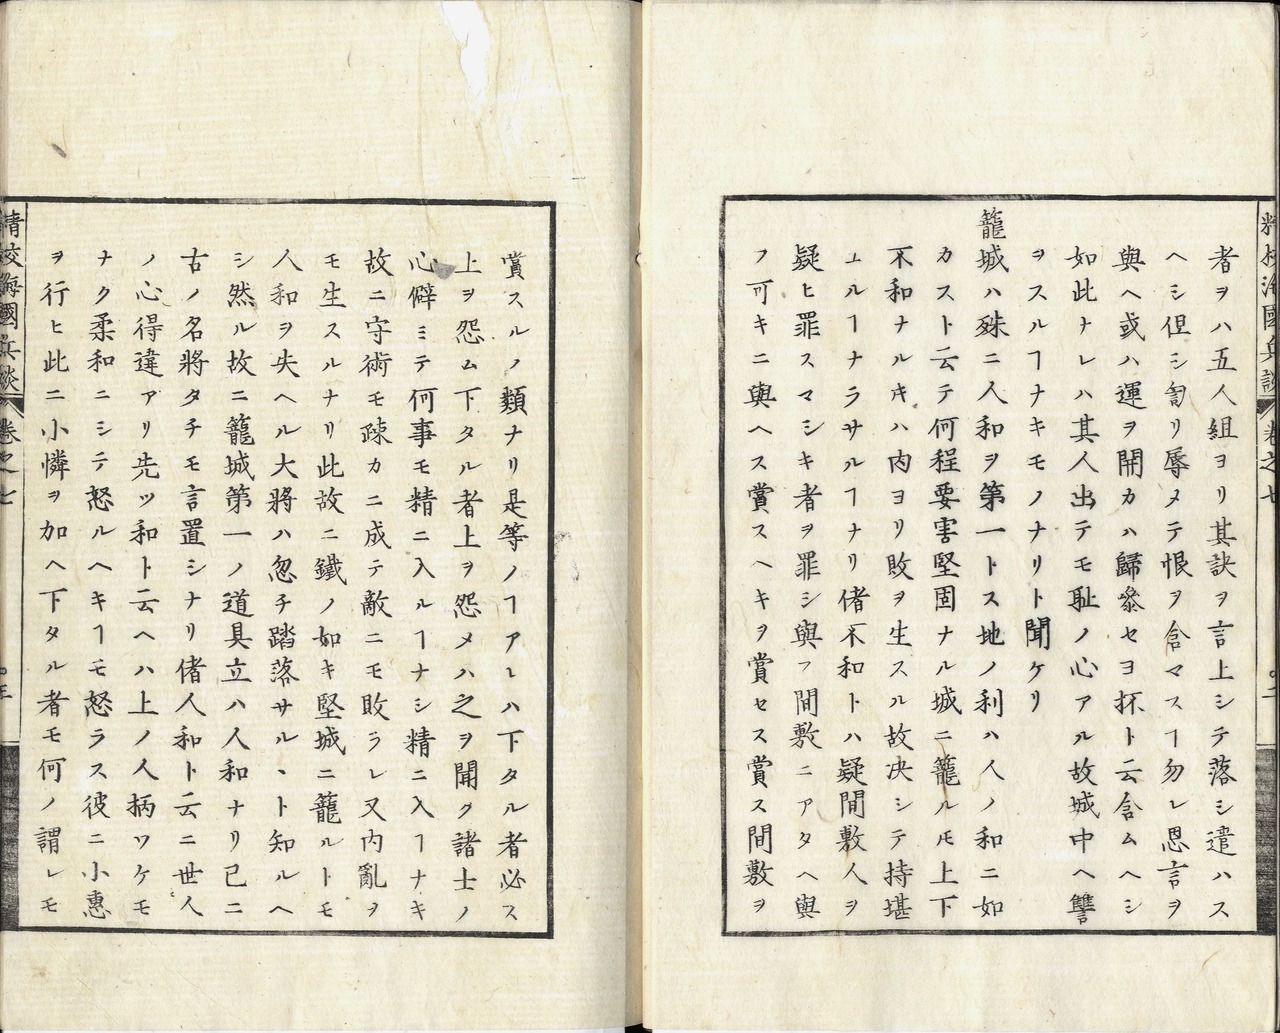 精校海國兵談 卷之七
者ヲハ五人組ヨリ其訣ヲ言上シテ落シ遣ハス
ヘシ但シ訇リ辱メテ恨ヲ含マスヿ勿レ恩言ヲ
與ヘ或ハ運ヲ開カハ歸參セヨ抔ト云含ムヘシ
如此ナレハ其人出テモ耻ノ心アル故城中ヘ讐
ヲスルヿナキモノナリト聞ケリ
籠城ハ殊ニ人和ヲ第一トス地ノ利ハ人ノ和ニ如
カスト云テ何程要害堅固ナル城ニ籠ルトモ上下
不和ナルキハ内ヨリ敗ヲ生スル故决シテ持堪
ユルヿナラサルヿナリ偖不和トハ疑間敷人ヲ
疑ヒ罪スマシキ者ヲ罪シ與フ間敷ニアタヘ與
フ可キニ與ヘス賞スヘキヲ賞セス賞ス間敷ヲ
賞スルノ類ナリ是等ノヿアレハ下タル者必ス
上ヲ怨ム下タル者上ヲ怨メハ之ヲ聞ク諸士ノ
心僻ミテ何事モ精ニ入ルヿナシ精ニ入ヿナキ
故ニ守術モ疎カニ成テ敵ニモ敗ラレ又内亂ヲ
モ生スルナリ此故ニ鐵ノ如キ堅城ニ籠ルトモ
人和ヲ失ヘル大將ハ忽チ踏落サルヽト知ルヘ
シ然ル故ニ籠城第一ノ道具立ハ人和ナリ已ニ
古ノ名將タチモ言置シナリ偖人和ト云ニ世人
ノ心得違アリ先ツ和ト云ヘハ上ノ人柄ツケモ
ナク柔和ニシテ怒ルヘキヿモ怒ラス彼ニ小惠
ヲ行ヒ此ニ小憐ヲ加ヘ下タル者モ何ノ謂レモ
精校海國兵談 卷之七